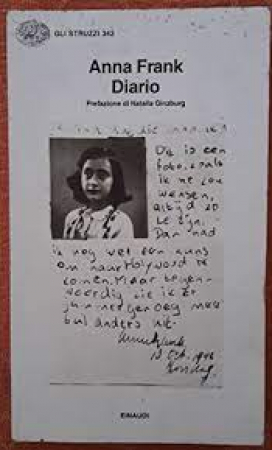 GLI STRUZZI 343
Anna Frank
Diario
Prefazione di Natalia Ginzburg
Dit is een
foto, zoals
ik me zou
wensen,
altijd zo
te zijn.
Dan had
ik nog wel een kans
om naar Holywood te
komen. Maar tegen-
woordig zie ik er
jammer genoeg mees
tal anders uit.
10 Oct. 1942
EINAUDI